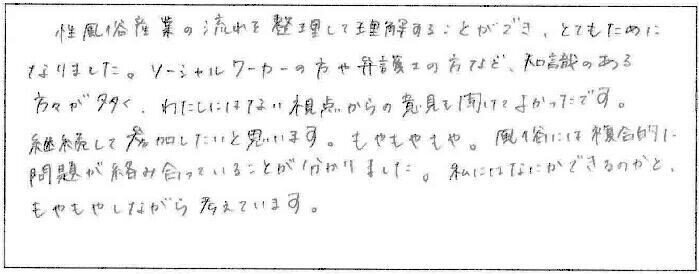 性風俗産業の流れを整理して理解することができ、とてもために
なりました。ソーシャルワーカーの方や弁護士の方など、知識のある
方々が多く、わたしにはない視点からの意見を聞けてよかったです。
継続して参加したいと思います。もやもやもや。風俗には複合的に
問題が絡み合っていることが分かりました。私にはなにができるのかと、
もやもやしながら考えています。